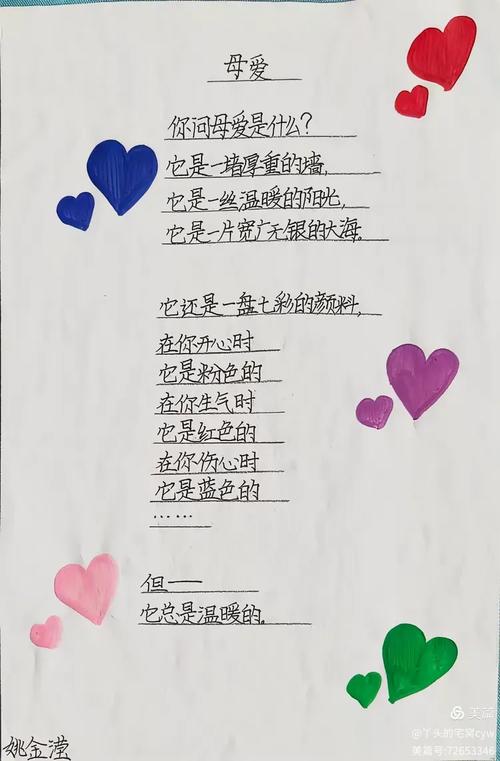 母爱
你问母爱是什么?
它是一堵厚重的墙,
它是一丝温暖的阳光,
它是一片宽广无银的大海。
它还是一盘七彩的颜料,
在你开心时
它是粉色的
在你生气时
它是红色的
在你伤心时
它是蓝色的
……
但——
它总是温暖的。
姚金滢
美篇
@丫头的宅窝cyw
美篇号:72653346